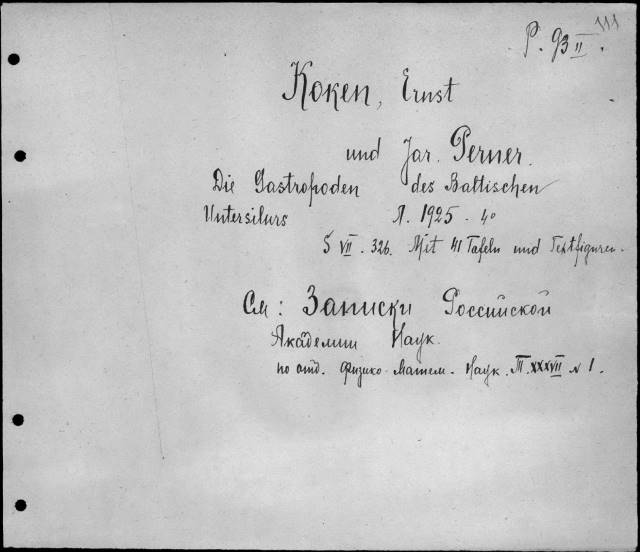 111
P. 93 II.
Koken, Ernst
und Jar. Perner.
Die Gastropoden des Baltischen
Untersilurs Л. 1925 - 4°
S VII - 326. Mit 41 Tafeln und Textfiguren.
См: Записки Российской
Академии Наук.
по отд. Физико-Матем. Наук. Т. XXXVII № 1.